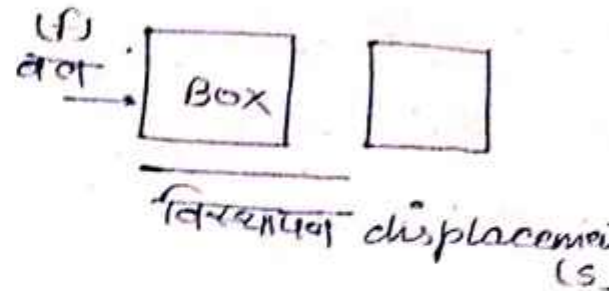 (f)
बल
BOX
विस्थापन displacemen
(s